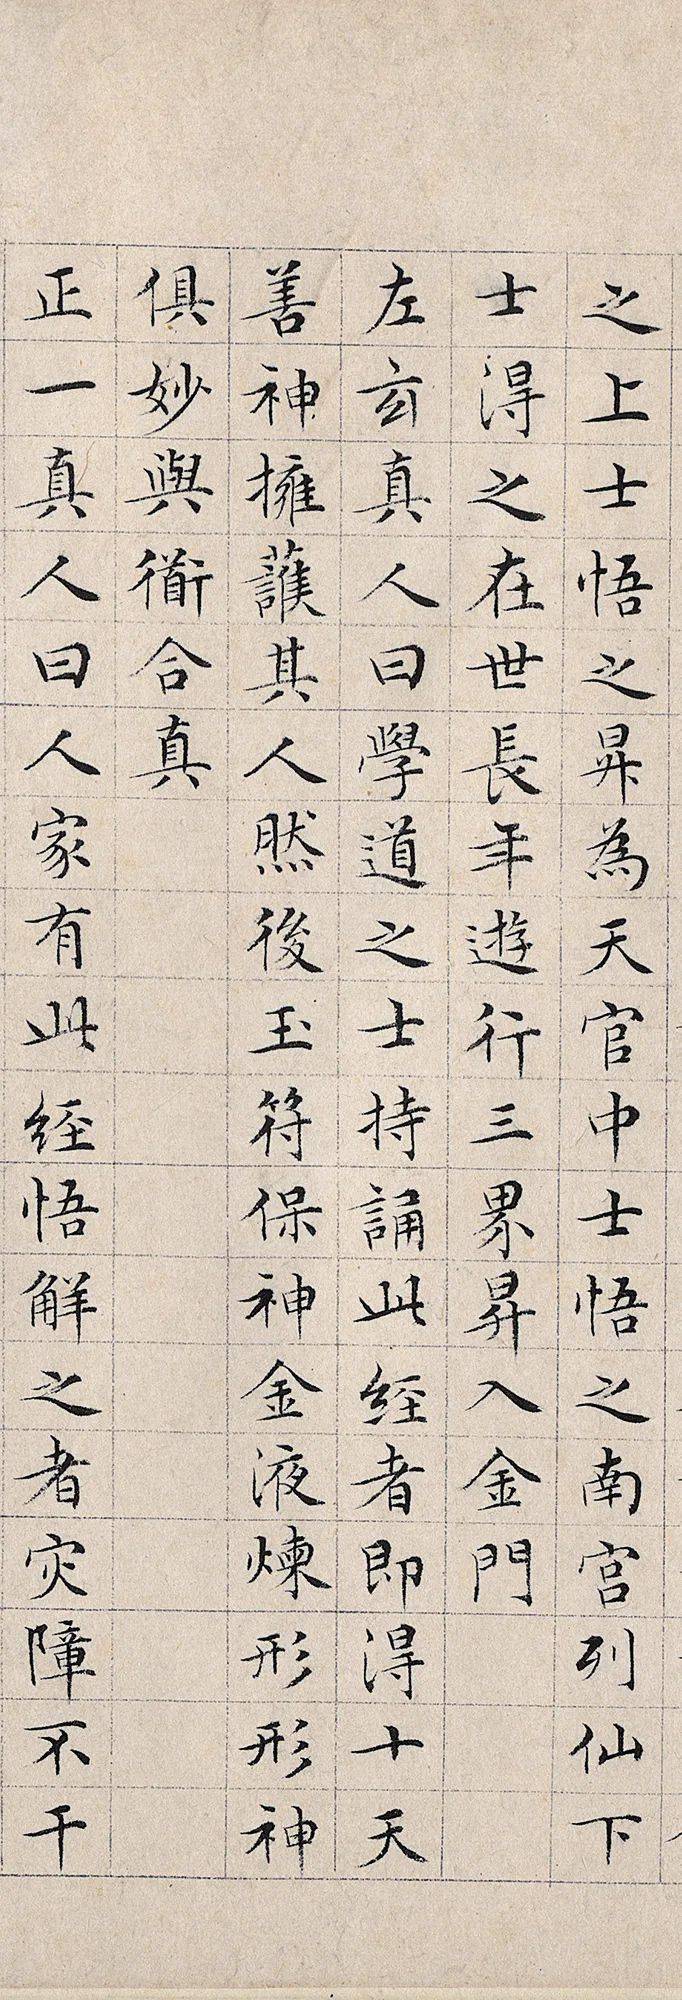 之上士悟之昇為天官中士悟之南宫列仙下
士得之在世長年遊行三界昇入金門
左玄真人曰學道之士持誦此経者即得十天
善神擁護其人然後玉符保神金液煉形形神
俱妙與衜合真
正一真人曰人家有此経悟觧之者灾障不干